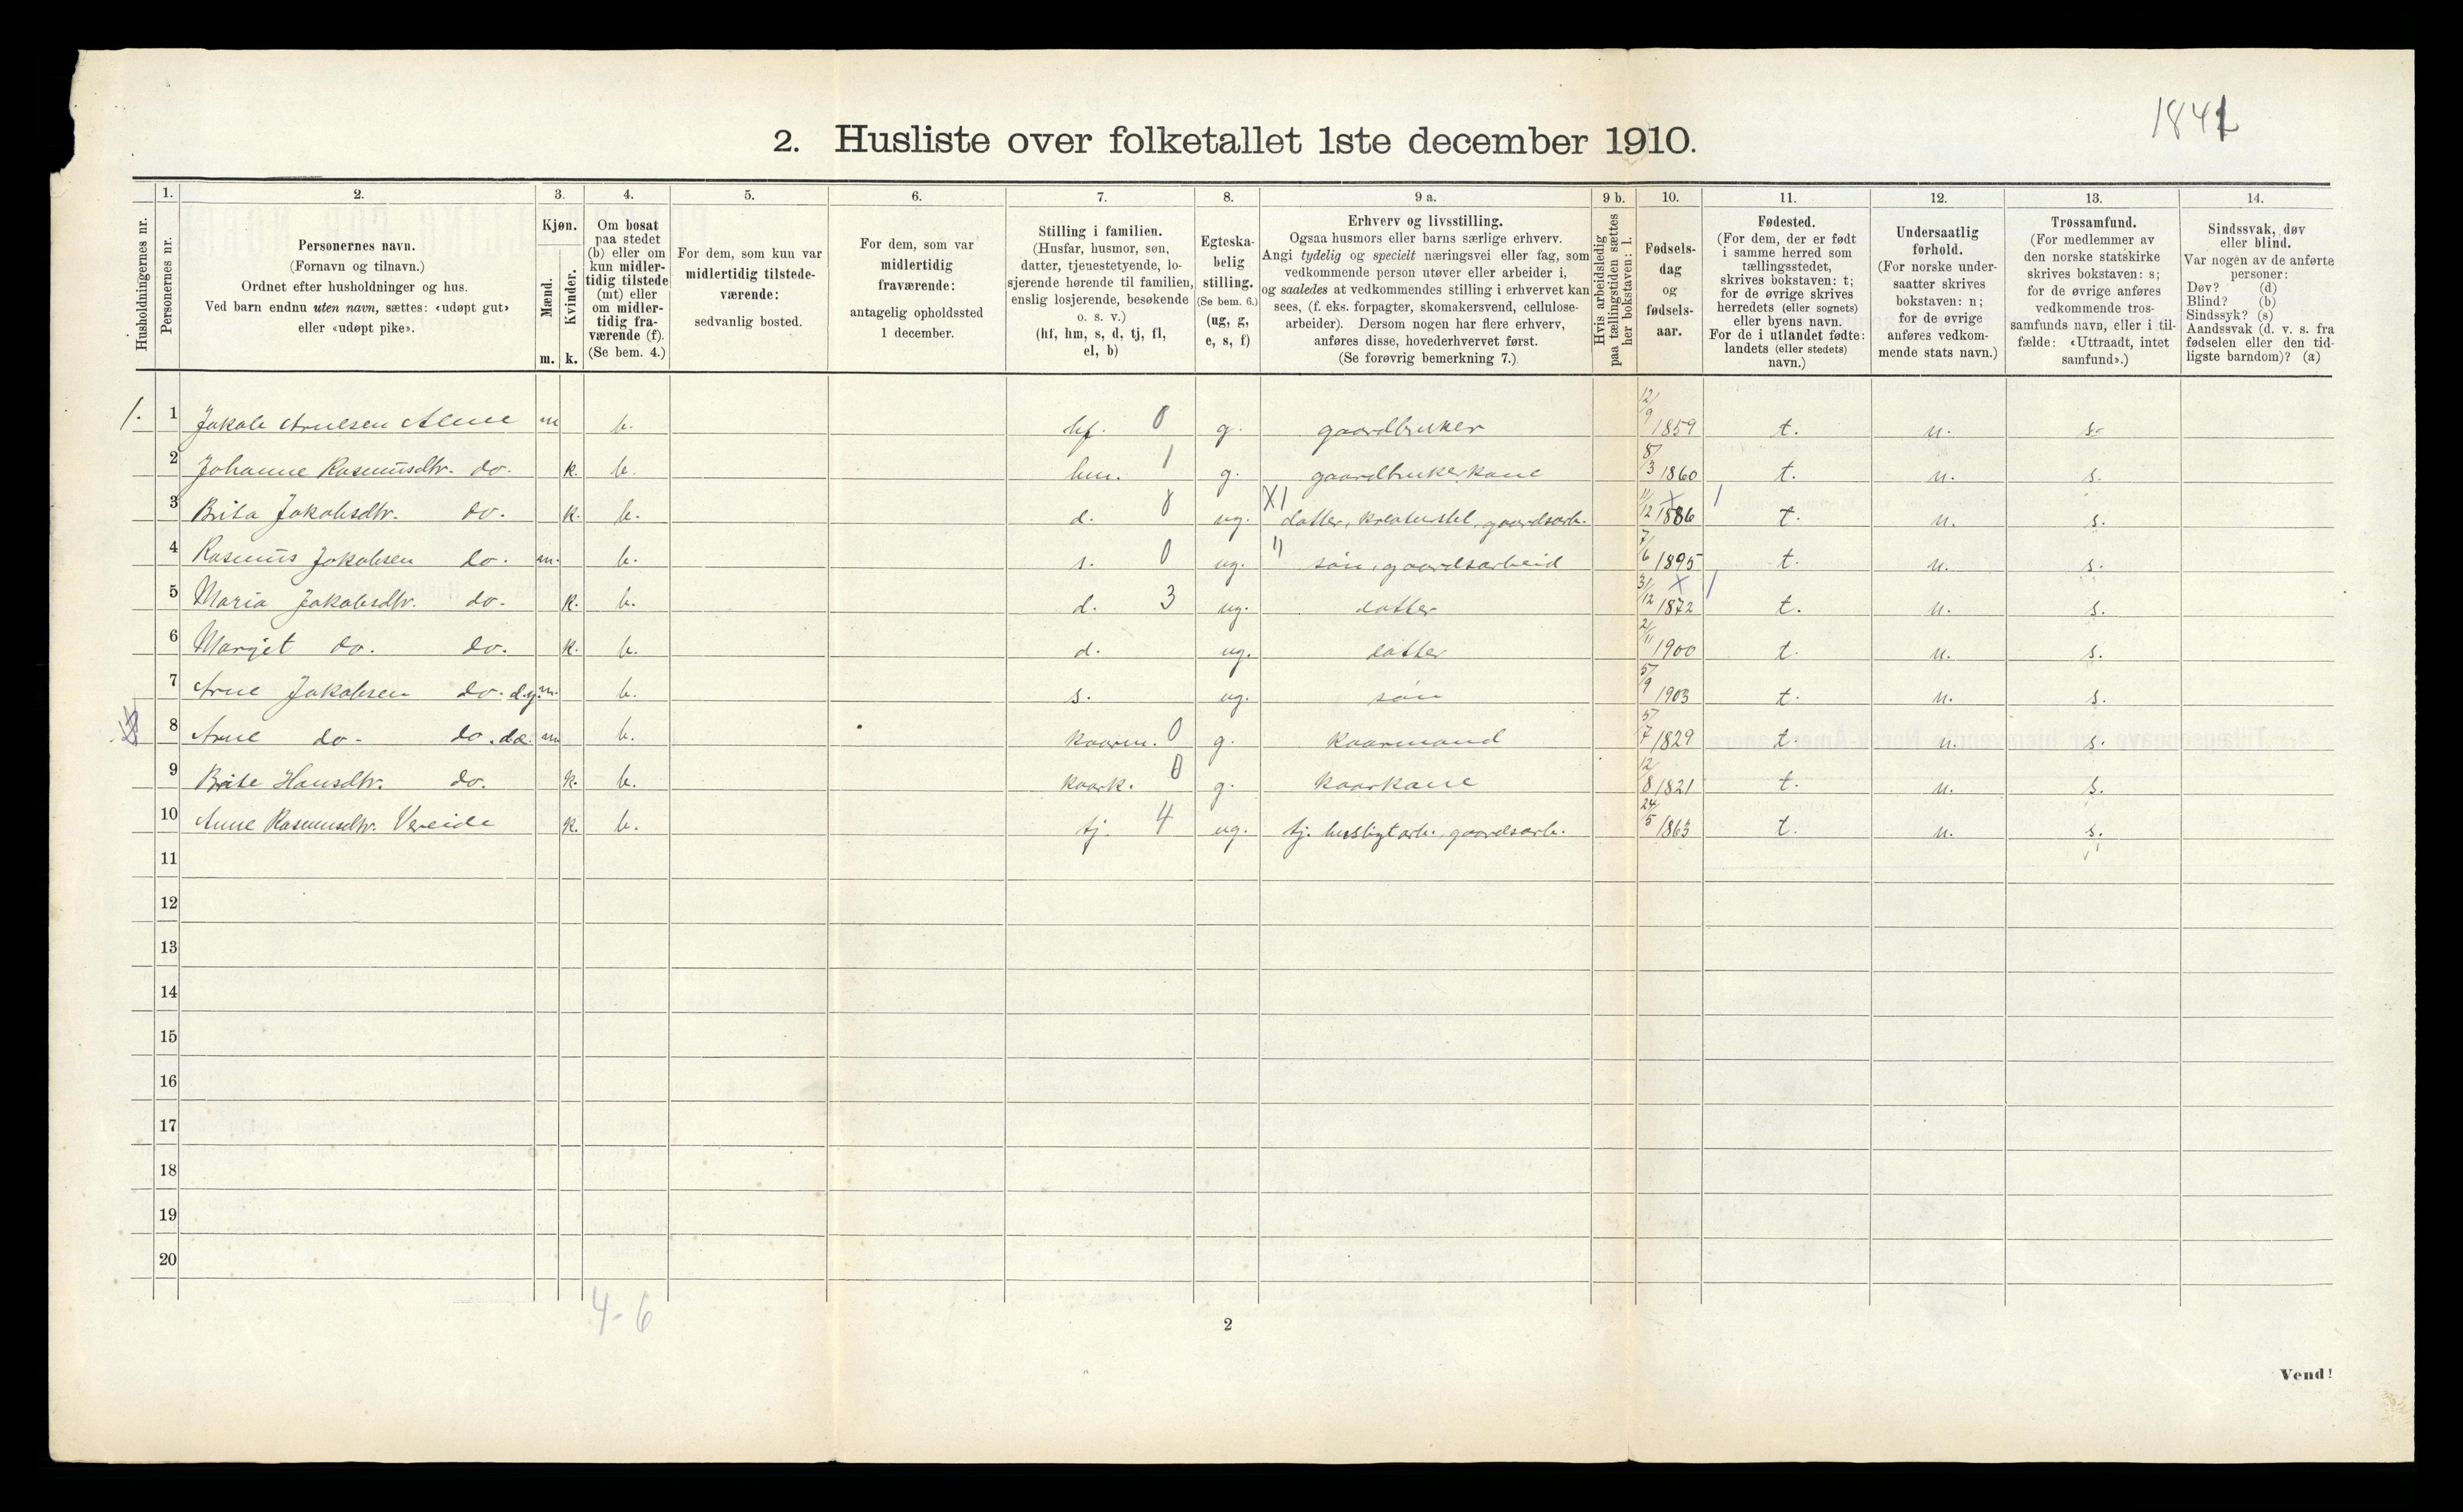 1841
2. Husliste over folketallet 1ste december 1910.
1. 2. 3. 4. 5. 6. 7. 8. 9 a. 9 b. 10. 11. 12. 13. 14.
Husholdningernes nr.
Personernes nr.
Personernes navn.
(Fornavn og tilnavn.)
Ordnet efter husholdninger og hus.
Ved barn endnu uten navn, sættes: «udøpt gut»
eller «udøpt pike».
Kjøn.
Mænd.
Kvinder.
m. k.
Om bosat
paa stedet
(b) eller om
kun midler-
tidig tilstede
(mt) eller
om midler-
tidig fra-
værende (f).
(Se bem. 4.)
For dem, som kun var
midlertidig tilstede-
værende:
sedvanlig bosted.
For dem, som var
midlertidig
fraværende:
antagelig opholdssted
1 december.
Stilling i familien.
(Husfar, husmor, søn,
datter, tjenestetyende, lo-
sjerende hørende til familien,
enslig losjerende, besøkende
o. s. v.)
(hf, hm, s, d, tj, fl,
el, b)
Egteska-
belig
stilling.
(Se bem. 6.)
(ug, g,
e, s, f)
Erhverv og livsstilling.
Ogsaa husmors eller barns særlige erhverv.
Angi tydelig og specielt næringsvei eller fag, som
vedkommende person utøver eller arbeider i,
og saaledes at vedkommendes stilling i erhvervet kan
sees, (f. eks. forpagter, skomakersvend, cellulose-
arbeider). Dersom nogen har flere erhverv,
anføres disse, hovederhvervet først.
(Se forøvrig bemerkning 7.)
Hvis arbeidsledig
paa tællingstiden sættes
her bokstaven: l.
Fødsels-
dag
og
fødsels-
aar.
Fødested.
(For dem, der er født
i samme herred som
tællingsstedet,
skrives bokstaven: t;
for de øvrige skrives
herredets (eller sognets)
eller byens navn.
For de i utlandet fødte:
landets (eller stedets)
navn.)
Undersaatlig
forhold.
(For norske under-
saatter skrives
bokstaven: n;
for de øvrige
anføres vedkom-
mende stats navn.)
Trossamfund.
(For medlemmer av
den norske statskirke
skrives bokstaven: s;
for de øvrige anføres
vedkommende tros-
samfunds navn, eller i til-
fælde: «Uttraadt, intet
samfund».)
Sindssvak, døv
eller blind.
Var nogen av de anførte
personer:
Døv? (d)
Blind? (b)
Sindssyk? (s)
Aandssvak (d. v. s. fra
fødselen eller den tid-
ligste barndom)? (a)
1. 1 Jakob Arnesen Alme m b. hf. 0 g. gaardbruker 12/9 1859 t. n. s.
2 Johanne Rasmusdtr. do. k. b. hm. 1 g. gaardbrukerkone 8/3 1860 t. n. s.
3 Brita Jakobsdtr. do. k. b. d. 0 ug. X1 datter, kreaturstel, gaardsarb. 11/12 1886 t. n. s.
4 Rasmus Jakobsen do. m. b. s. 0 ug. søn, gaardsarbeid 7/6 1895 t. n. s.
5 Maria Jakobsdtr. do. k. b. d. 3 ug. datter 31/12 1872 t. n. s.
6 Marjet do. do. k. b. d. ug. datter 2/11 1900 t. n. s.
7 Arne Jakobsen do. d.y. m. b. s. ug. søn 5/9 1903 t. n. s.
8 Arne do. do. d.æ. m. b. kaarm. 0 g. kaarmand 5/7 1829 t. n. s.
9 Brite Hansdtr. do. k. b. kaark. 0 g. kaarkone 12/8 1821 t. n. s.
10 Anne Rasmusdtr. Vereide k. b. tj. 4 ug. tj. husligt arb., gaardsarb. 24/5 1863 t. n. s.
11
12
13
14
15
16
17
18
19
20
4-6
2
Vend!